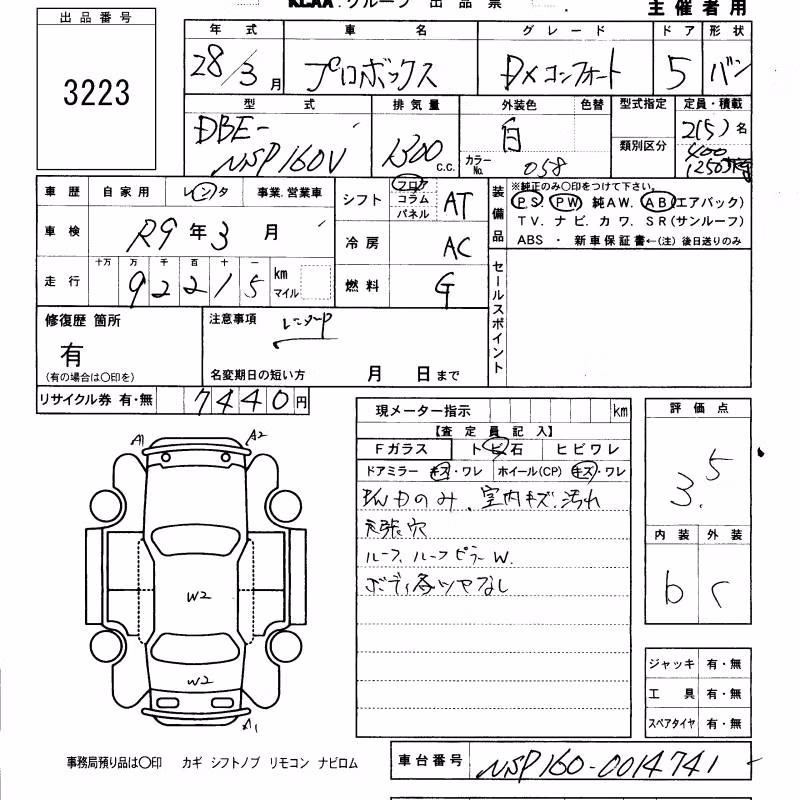 KCAA.グループ 出品票
主催者用
出品番号
3223
年式 車名 グレード ドア 形状
28/3月 プロボックス DXコンフォート 5 バン
型式 排気量 外装色 色替 型式指定 定員・積載
DBE-NSP160V 1300 c.c. 白 カラーNo. 058 類別区分 2(5)名 400
車歴 自家用 レンタ 事業.営業車
車検 R9年3月
走行 十万 万 千 百 十 一
92215 km マイル
シフト フロア コラム パネル AT
冷房 AC
燃料 G
装備品 ※純正のみ〇印をつけて下さい。
PS PW 純AW. AB(エアバック)
TV. ナビ. カワ. SR(サンルーフ)
ABS ・ 新車保証書←(注) 後日送りのみ
セールスポイント
修復歴 箇所
有
(有の場合は〇印を)
注意事項 レンタUP
名変期日の短い方 月 日まで
リサイクル券 有・無 7440円
現メーター指示 km
【査定員記入】
Fガラス ト ビ 石 ヒビワレ
ドアミラー キズ・ワレ ホイール(CP) キズ・ワレ
室内キズ.汚れ
天張穴
ルーフ、ルーフピラーW.
ボディ各ツヤなし
評価点
3.5
内装 外装
b C
ジャッキ 有・無
工具 有・無
スペアタイヤ 有・無
A1 A2
W2
W2
A1
事務局預り品は〇印 カギ シフトノブ リモコン ナビロム
車台番号 NSP160-0014741